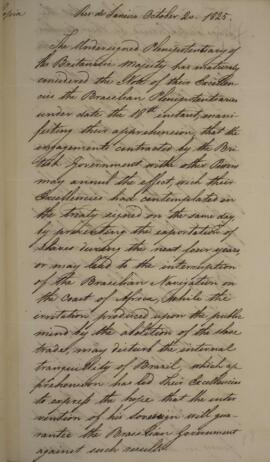 Copia
Rio de Janeiro October 20. 1825.
The Undersigned Plenipotentiary of
His Britannic Majesty has maturely
considered the Note of their Excellen-
cies the Brazilian Plenipotentiaries
under date the 18th instant, mani-
festing their apprehension that the
engagements contracted by the Bri-
tish Government with other Powers
may annul the effect, wich their
Excellencies had contemplated in
the treaty signed on the same day
by preventing the exportation of
Slaves during the next four years
or may lead to the interruption
of the Brazilian Navigation on
the Coast of Africa, while the
irritation produced upon the public
mind by the abolition of the slave
trade, may disturb the internal
tranquility of Brazil, which ap
prehension has led Their Excellencies
to express the hope that the inter
vention of his Sovereign will gua-
rantee the Brazilian Government
against such results.